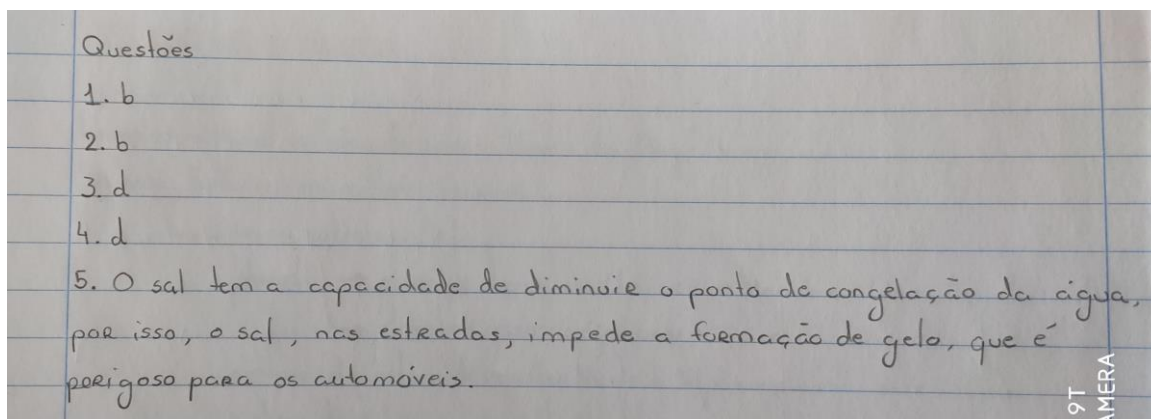 Questões
1. b
2. b
3. d
4. d
5. O sal tem a capacidade de diminuir o ponto de congelação da água,
por isso, o sal, nas estradas, impede a formação de gelo, que é
perigoso para os automóveis.
9T
AMERA